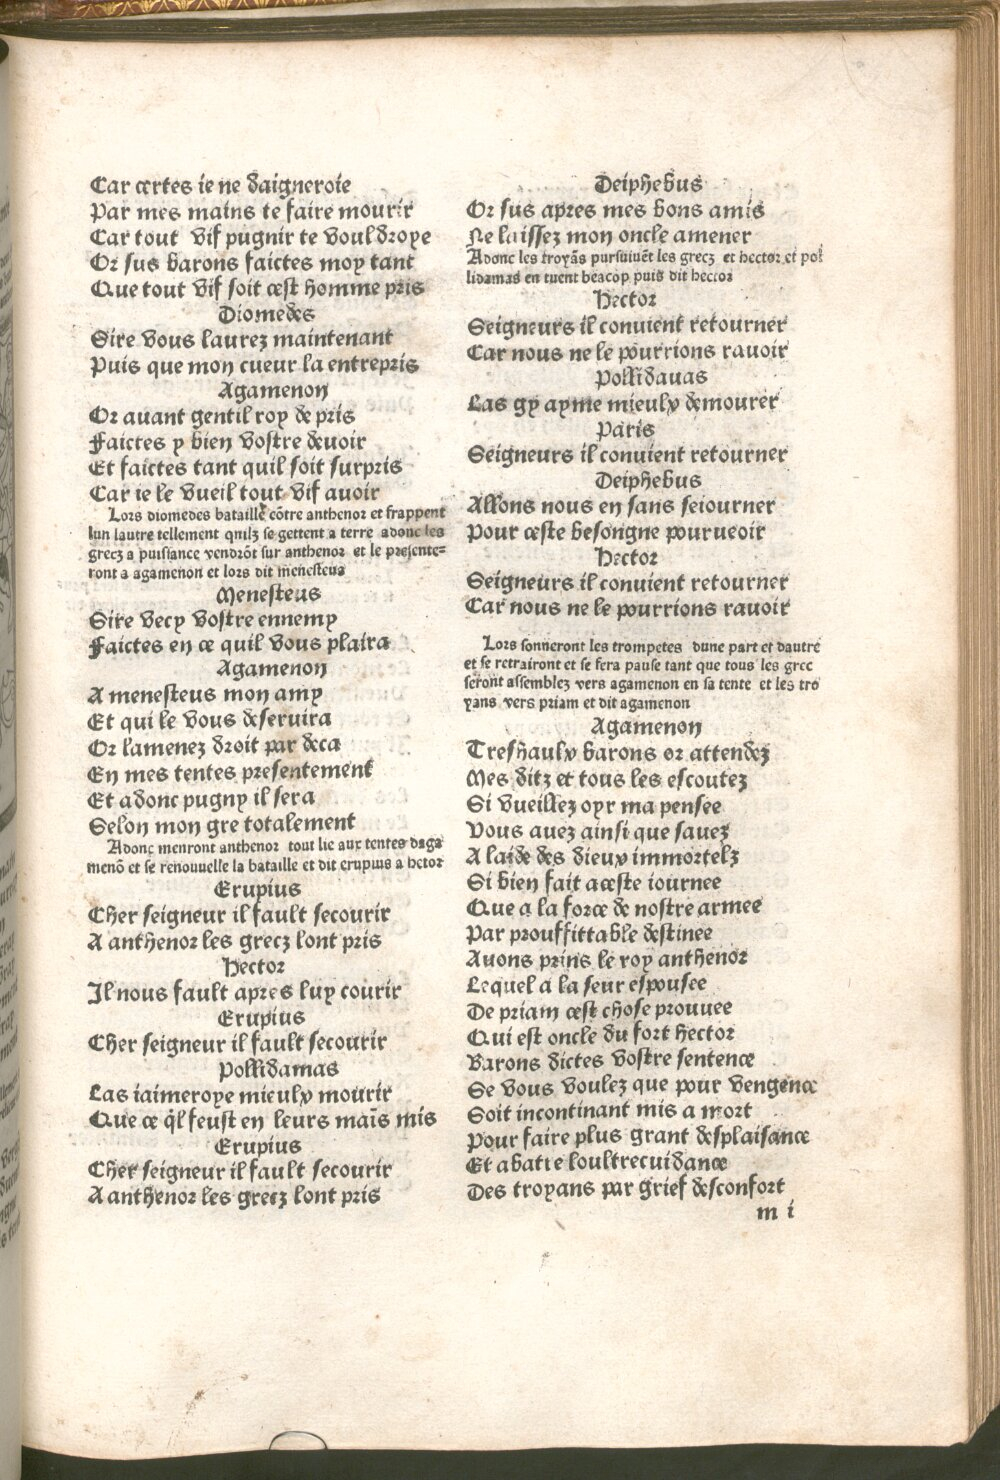 Car certes ie ne daigneroie
Par mes mains te faire mourir
Car tout vif pugnir te vouldroye
Or sus barons faictes moy tant
Que tout vif soit cest homme pris
Diomedes
Sire vous laurez maintenant
Puis que mon cueur la entrepris
Agamenon
Or auant gentil roy de pris
Faictes y bien vostre deuoir
Et faictes tant quil soit surpris
Car ie le vueil tout vif auoir
Lors diomedes bataille cōtre anthenor et frappent
lun lautre tellement quilz se gettent a terre adonc les
grecz a puissance vendrōt sur anthenor et le presente=
ront a agamenon et lors dit menesteus
Menesteus
Sire vecy vostre ennemy
Faictes en ce quil vous plaira
Agamenon
A menesteus mon amy
Et qui le vous deseruira
Or lamenez droit par deca
En mes tentes presentement
Et adonc pugny il sera
Selon mon gre totalement
Adonc menront anthenor tout lie aux tentes daga
menō et se renouuelle la bataille et dit erupius a hetor
Erupius
Cher seigneur il fault secourir
A anthenor les grecz lont pris
Hector
Il nous fault apres luy courir
Erupius
Cher seigneur il fault secourir
Pollidamas
Las iaimeroye mieulx mourir
Que ce q̄l feust en leurs maīs mis
Erupius
Cher seigneur il fault secourir
A anthenor les grecz lont pris
Deiphebus
Or sus apres mes bons amis
Ne laissez mon oncle amener
Adonc les troyās pursuiuēt les grecz et hector et pol
lidamas en tuent beacop puis dit hector
Hector
Seigneurs il conuient retourner
Car nous ne le pourrions rauoir
Pollidauas
Las gy ayme mieulx demourer
Paris
Seigneurs il conuient retourner
Deiphebus
Allons nous en sans seiourner
Pour ceste besongne pourueoir
Hector
Seigneurs il conuient retourner
Car nous ne le pourrions rauoir
Lors sonneront les trompetes dune part et dautre
et se retrairont et se fera pause tant que tous les grec
seront assemblez vers agamenon en sa tente et les tro
yans vers priam et dit agamenon
Agamenon
Treshaulx barons or attendez
Mes ditz et tous les escoutez
Si vueillez oyr ma pensee
Vous auez ainsi que sauez
A laide des dieux immortelz
Si bien fait aceste iournee
Que a la force de nostre armee
Par prouffittable destinee
Auons prins le roy anthenor
Lequel a la seur espousee
De priam cest chose prouuee
Qui est oncle du fort hector
Barons dictes vostre sentence
Se vous voulez que pour vengence
Soit incontinant mis a mort
Pour faire plus grant desplaisance
Et abatre loultrecuidance
Des troyans par grief desconfort
m i